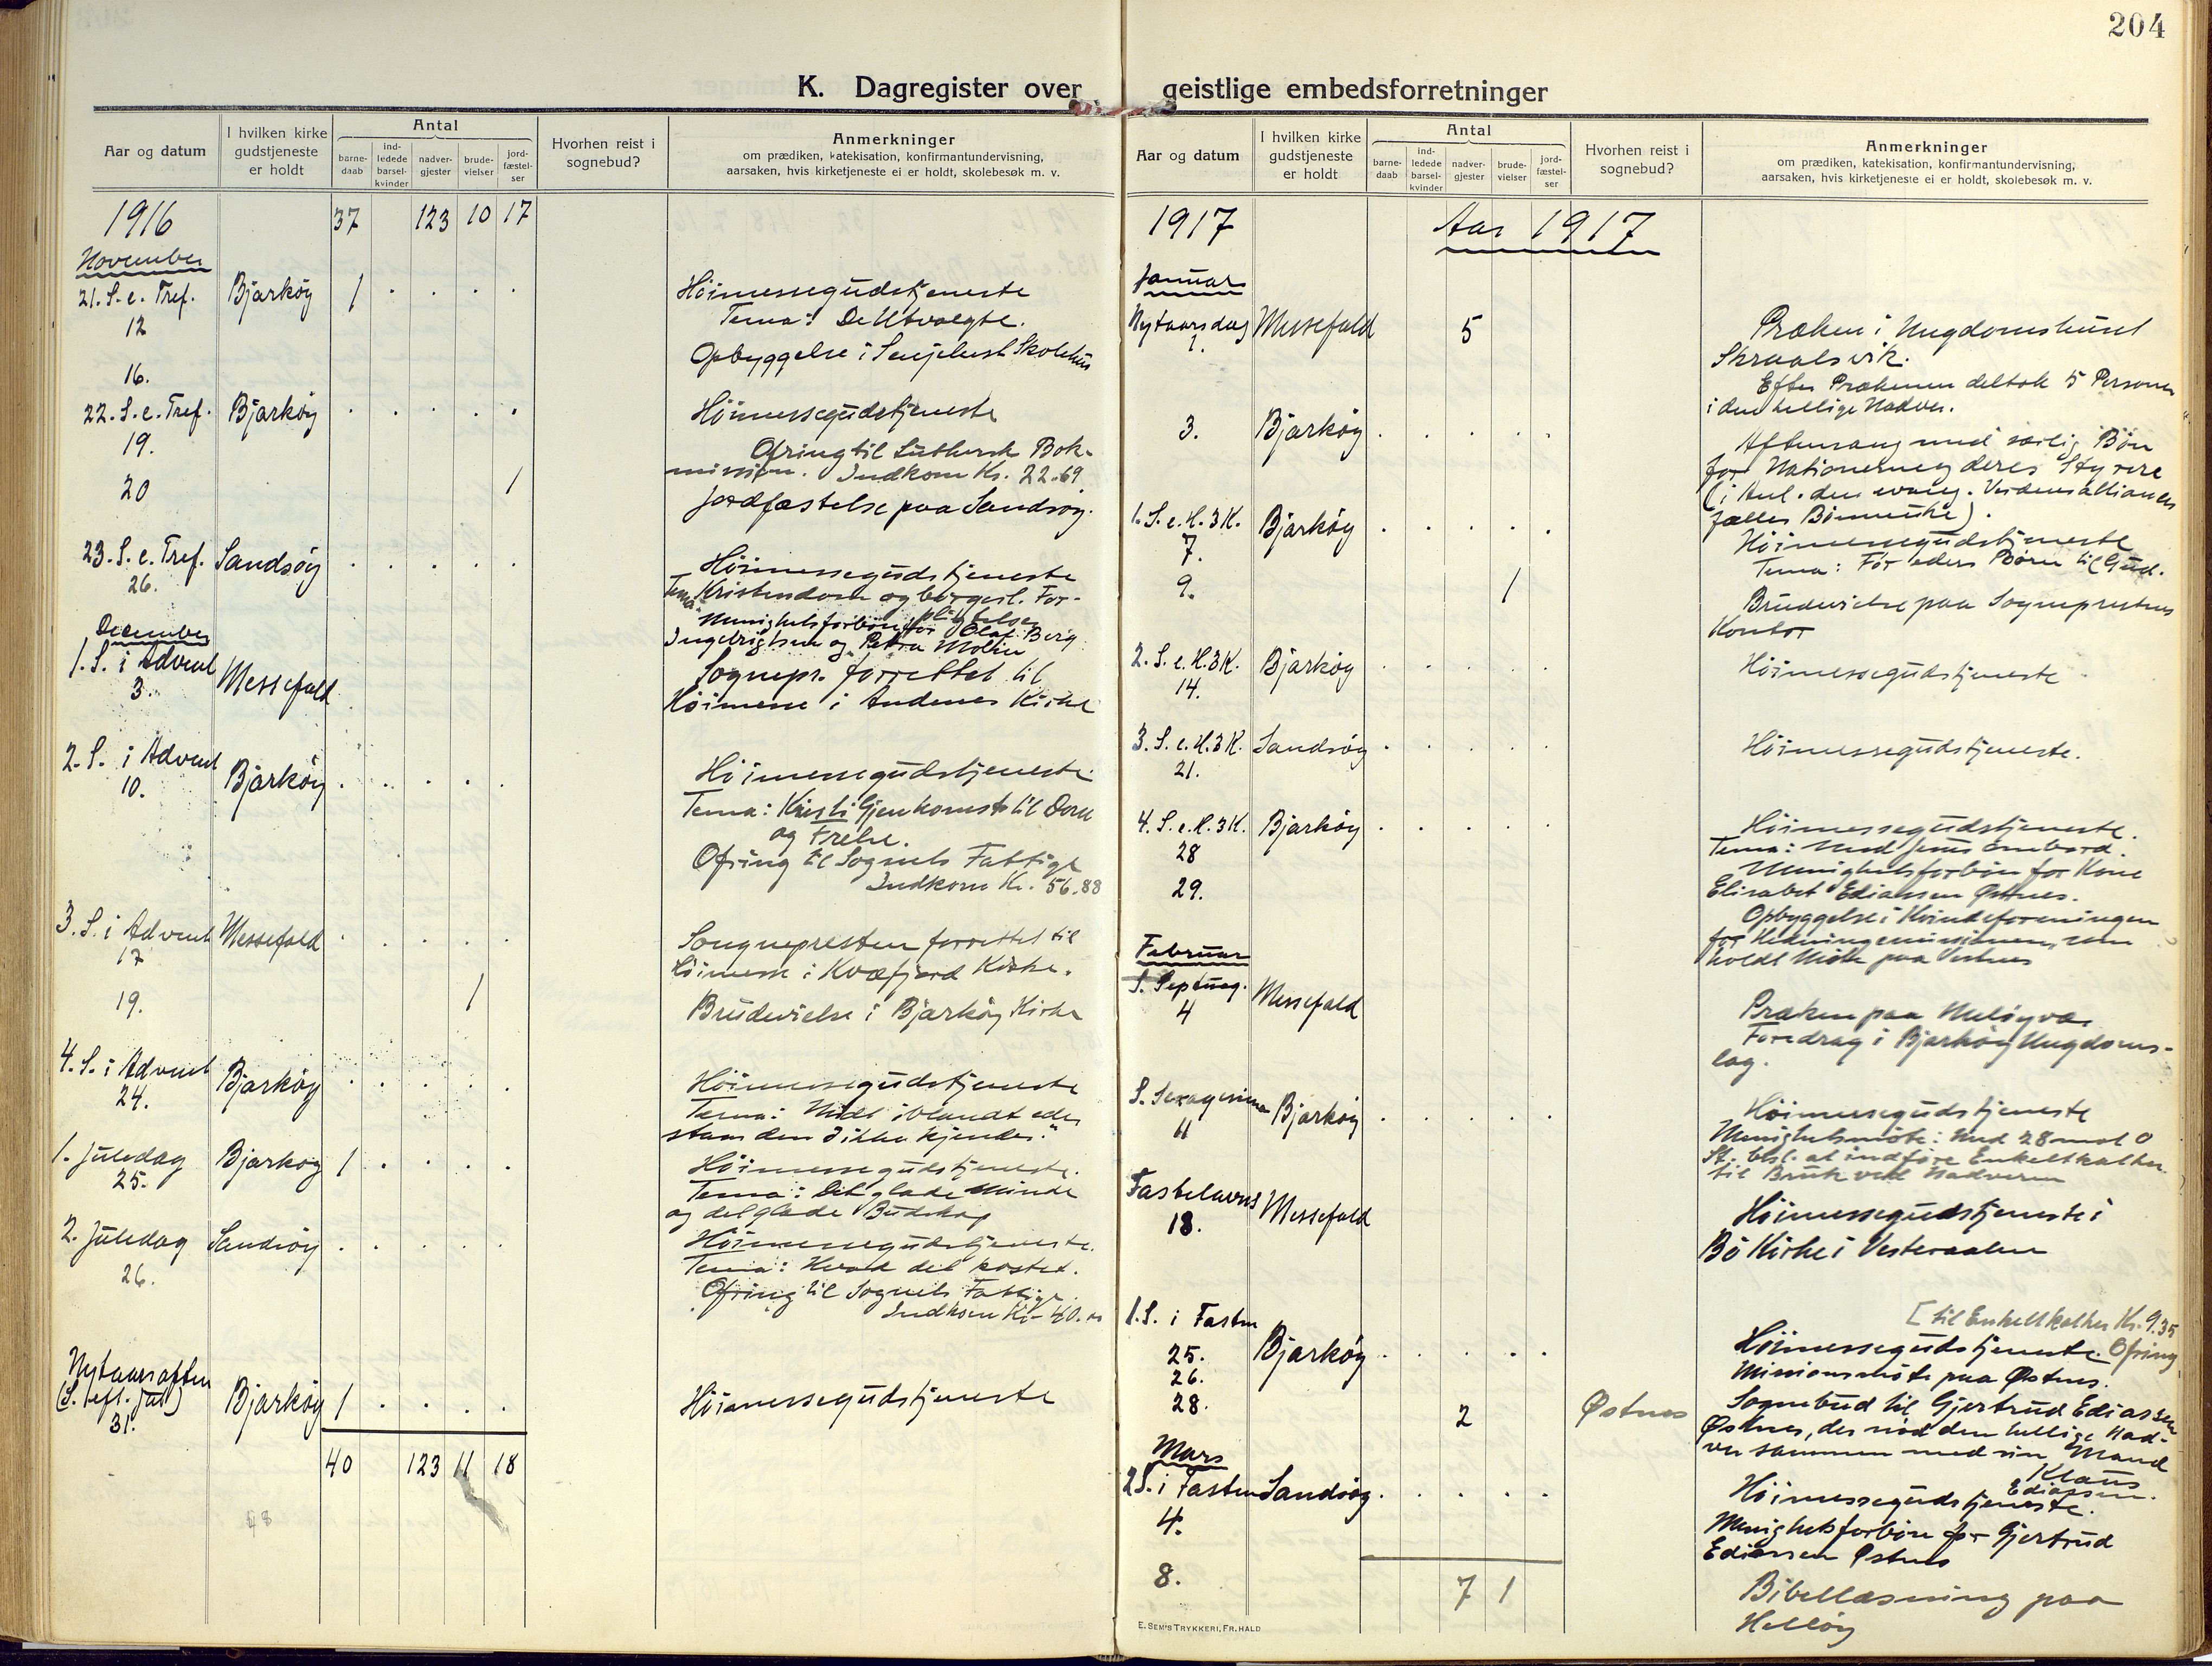 204
K. Dagregister over geistlige embedsforretninger
Aar og datum
I hvilken kirke gudstjeneste er holdt
Antal
barne-daab
ind-ledede barsel-kvinder
nadver-gjester
brude-vielser
jord-fæstel-ser
Hvorhen reist i sognebud?
Anmerkninger
om prædiken, katekisation, konfirmantundervisning,
aarsaken, hvis kirketjeneste ei er holdt, skolebesøk m. v.
1916 37 123 10 17
November
21. S. e. Tref. Bjarkøy 1 . . . . Höimessegudstjeneste
12 Tema: De Utvalgte.
16. Opbyggelse i Skolehus
22. S. e. Tref. Bjarkøy . . . . . Höimessegudstjeneste
19. Ofring til Luthersk Bok-
mission. Indkom Kr. 22.69
20 1 Jordfæstelse paa Sandsöy.
23. S. e. Tref. Sandsöy . . . . . Höimessegudstjeneste
26. Tema: Kristendom og borgerl. For-
pligtelser
Menighetsforbön for Olaf Berg
Ingebrigtsen og Petra Molin
December
1. S. i Advent Messefald Sognepr. forrettet til
3. Höimesse i Andenes Kirke
2. S. i Advent Bjarkøy . . . . . Höimessegudstjeneste
10. Tema: Kristi Gjenkomst til Dom
og Frelse.
Ofring til Sognets Fattige
Indkom Kr. 56.88
3. S. i Advent Messefald . . . . . Songnepresten forrettet til
17 Höimesse i Kvæfjord Kirke.
19. 1 Brudevielse i Bjarkøy Kirke
4. S. i Advent Bjarkøy . . . . . Höimessegudstjeneste
24. Tema: Midt iblandt eder
staar den I ikke kjender."
1. Juledag Bjarkøy 1 . . . . Höimessegudstjeneste.
25. Tema: Det glade Minde
og det glade Budskap
2. Juledag Sandsöy . . . . . Höimessegudstjeneste.
26. Tema: Hvad det kostet.
Ofring til Sognets Fattige
Indkom Kr. 40.
Nytaarsaften
(S. eft. Jul) Bjarkøy 1 . . . . Höimessegudstjeneste
31.
40 123 11 18
48
Aar og datum
I hvilken kirke gudstjeneste er holdt
Antal
barne-daab
ind-ledede barsel-kvinder
nadver-gjester
brude-vielser
jord-fæstel-ser
Hvorhen reist i sognebud?
Anmerkninger
om prædiken, katekisation, konfirmantundervisning,
aarsaken, hvis kirketjeneste ei er holdt, skolebesøk m. v.
1917 Aar 1917
Januar
Nytaarsdag Messefald 5 Præken i Ungdomshuset
1. Skraalsvik.
Efter Prækenen deltok 5 Personer
i den hellige Nadver.
3. Bjarkøy . . . . . Aftensang med særlig Bön
for Nationerne og deres Styrere
(i Anl. den evang. Verdensalliances
fælles Bönneuke).
1. S. e. H. 3 K. Bjarkøy . . . . . Höimessegudstjeneste
7. Tema: För eders Börn til Gud.
9. 1 Brudevielse paa Sogneprestens
Kontor
2. S. e. H. 3 K. Bjarkøy . . . . . Höimessegudstjeneste
14.
3. S. e. H. 3 K. Sandsöy . . . . . Höimessegudstjeneste.
21.
4. S. e. H. 3 K. Bjarkøy . . . . . Höimessegudstjeneste.
28 Tema: Med Jesus ombord.
Menighetsforbön for Kone
Elisabet Ediassen Østnes.
29. Opbyggelse i Kvindeforeningen
for Hedningemissionen, som
holdt Möte paa Vestnes
Februar
S. Septuag. Messefald Præken paa Meløyvær
4 Foredrag i Bjarkøy Ungdoms-
lag.
S. Sexagesima Bjarkøy . . . . . Höimessegudstjeneste
11 Menighetsmöte: Med 28 mot 0
St. besl. at indföre Enkeltkalker
til Bruk ved Nadveren
Fastelavns Messefald Höimessegudstjeneste i
18. Bö Kirke i Vesteraalen
[til Enkeltkalker Kr. 9.35
1. S. i Fasten Bjarkøy . . . . . Höimessegudstjeneste. Ofring
25.
26. Missionsmöte paa Østnes.
28. 2 Østnes Sognebud til Gjertrud Ediassen
Østnes, der nöd den hellige Nad-
ver sammen med sin Mand
Klaus
Ediassen.
Mars
2 S. i Fasten Sandsöy . . . . . Höimessegudstjeneste.
4. Menighetsforbön for Gjertrud
Ediassen Østnes
8. Bibellæsning paa
Hellöy
7 1
E. SEM'S TRYKKERI, FR.HALD